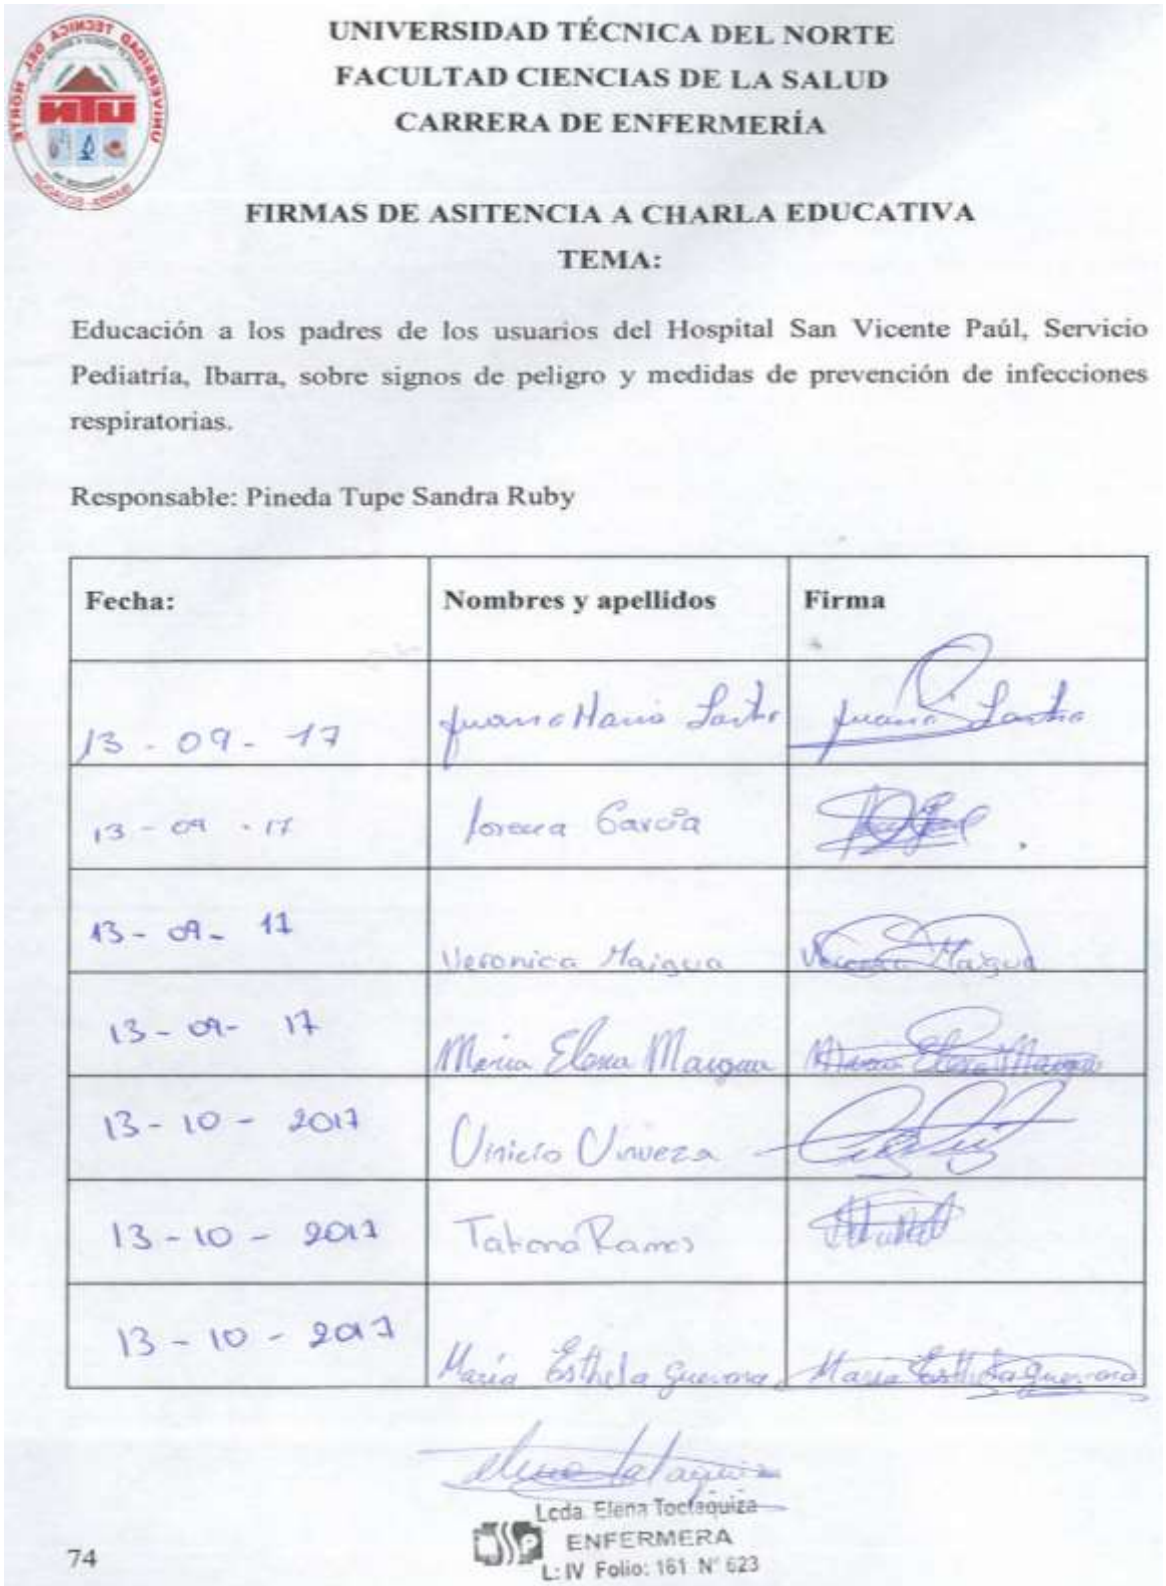 UNIVERSIDAD TÉCNICA DEL NORTE
FACULTAD CIENCIAS DE LA SALUD
CARRERA DE ENFERMERÍA
UNIVERSIDAD TECNICA DEL NORTE
UTN
IBARRA - ECUADOR
FIRMAS DE ASITENCIA A CHARLA EDUCATIVA
TEMA:
Educación a los padres de los usuarios del Hospital San Vicente Paúl, Servicio
Pediatría, Ibarra, sobre signos de peligro y medidas de prevención de infecciones
respiratorias.
Responsable: Pineda Tupe Sandra Ruby
Fecha: Nombres y apellidos Firma
13 - 09 - 17 Juana Maria
13 - 09 - 17 Lorena García
13 - 09 - 17 Veronica Maigua Maigua
13 - 09 - 17 Maria Elena Maigua Maria Elena Maigua
13 - 10 - 2017 Vinicio Vinueza
13 - 10 - 2017 Tatiana Ramos
13 - 10 - 2017 María Esthela Guevara María Esthela Guevara
Lcda. Elena Toctaquiza
ENFERMERA
L: IV Folio: 161 N° 623
74